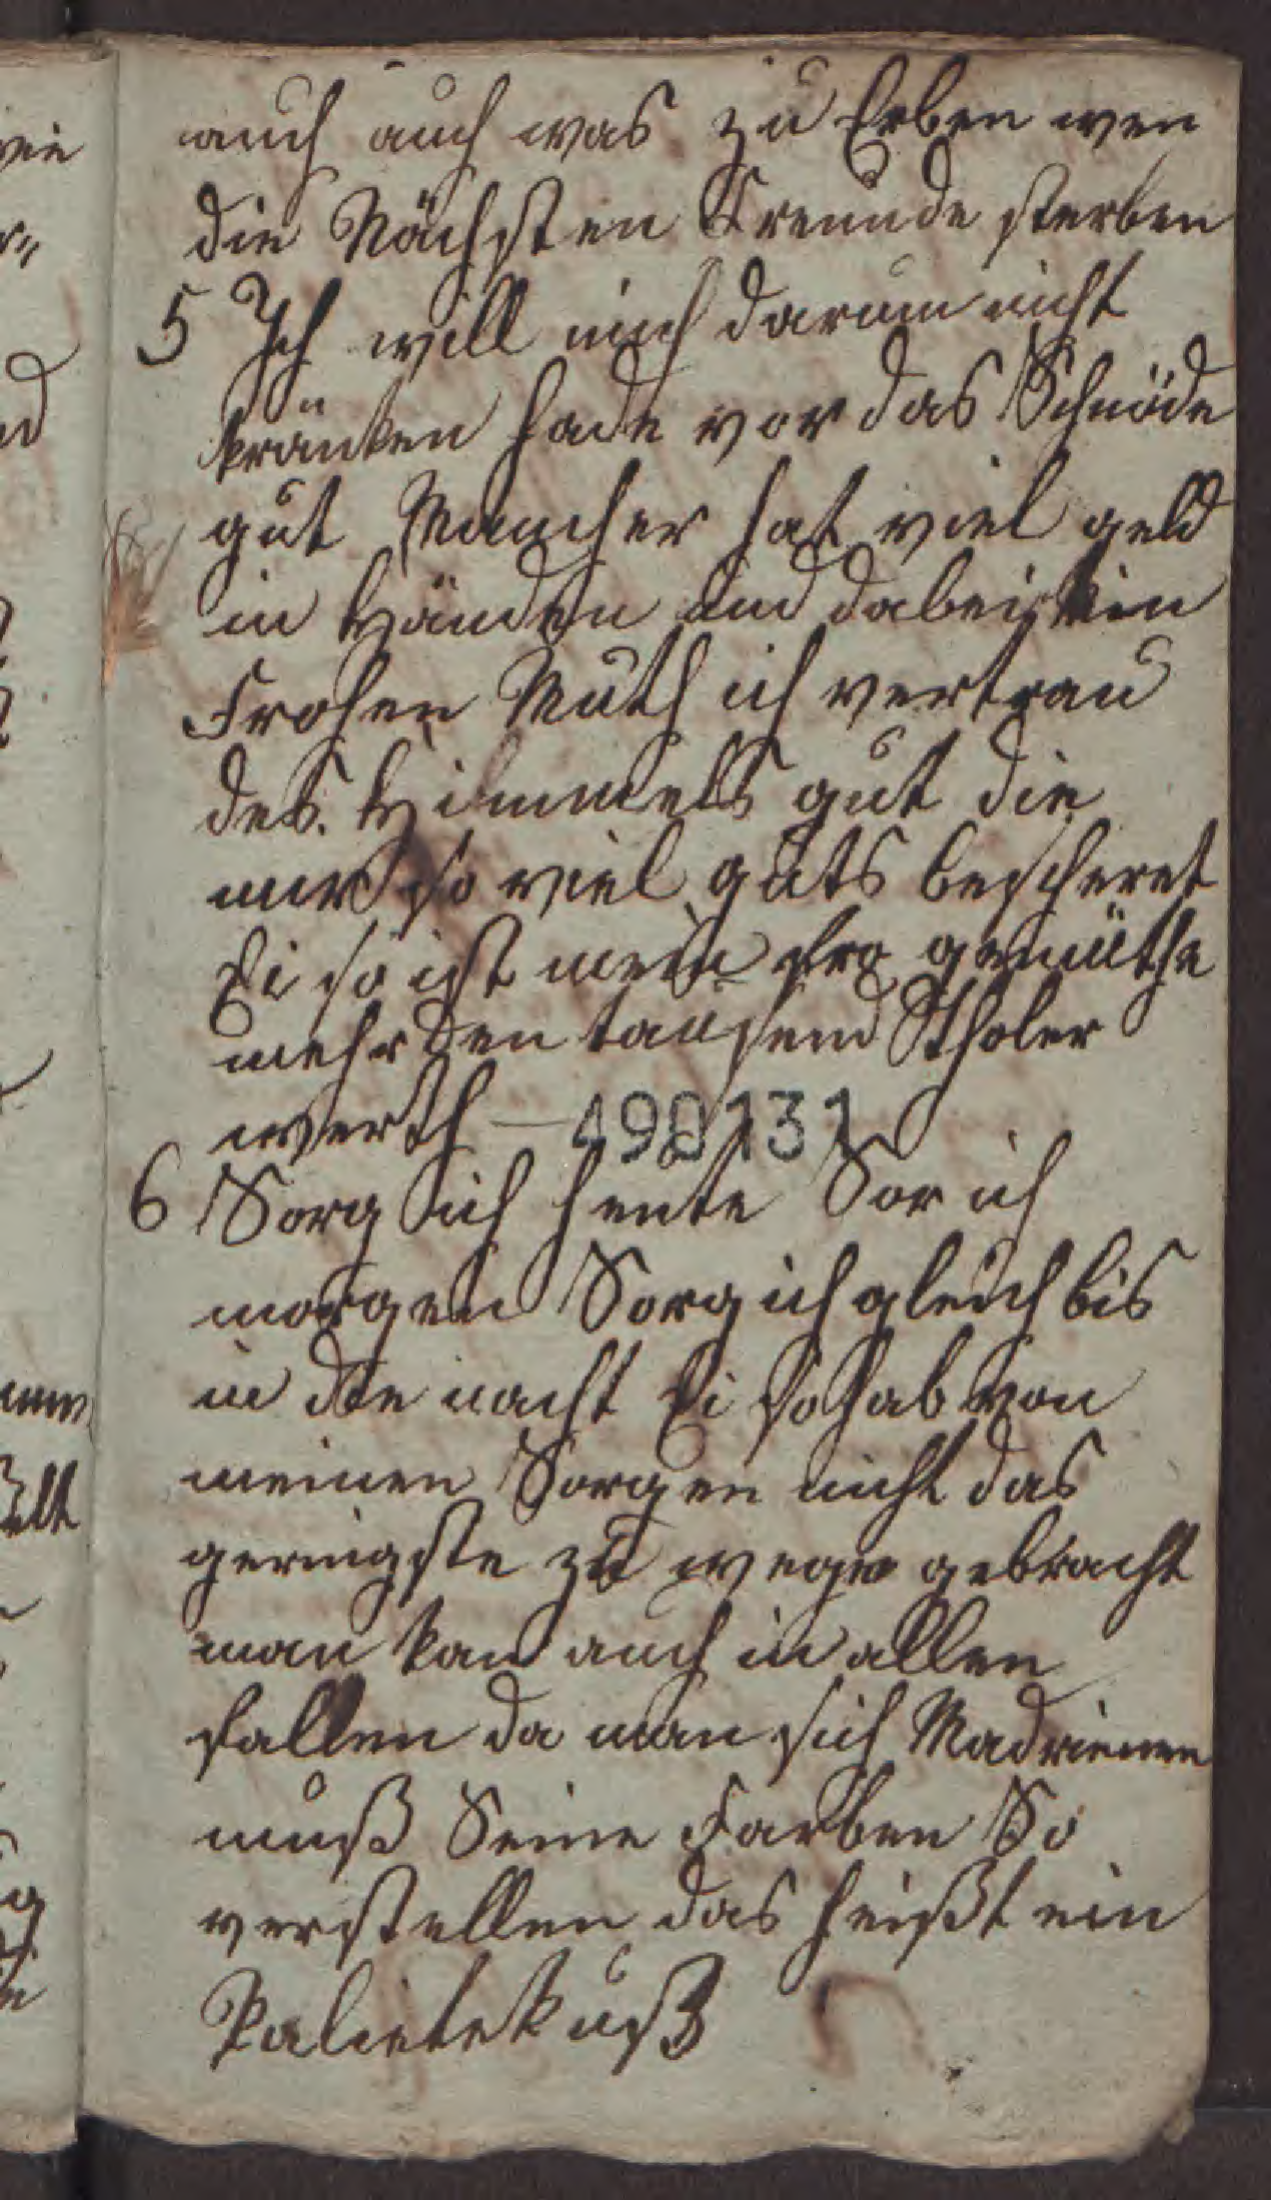 auch auch was zu Erben wen
die Nächsten Freunde sterben
5 Ich will mich darum nicht
kränken hade vor das Schnöde
gut Mancher hat viel geld
in Händen und dabei kein
Frohen Muth ich vertrau
des Himmels gut die
mir so viel guts bescheret
Ei so ist mein fro gemüthe
mehr den tausend Tholer
werth 490131
6 Sorg ich heute Sor ich
morgen Sorg ich gleich bis
in die nacht Ei so hab von
meinen Sorgen nicht das
geringste zu wege gebracht
man kan auch in allen
fallen da man sich
muß Seine Farben So
verstellen das heißt ein